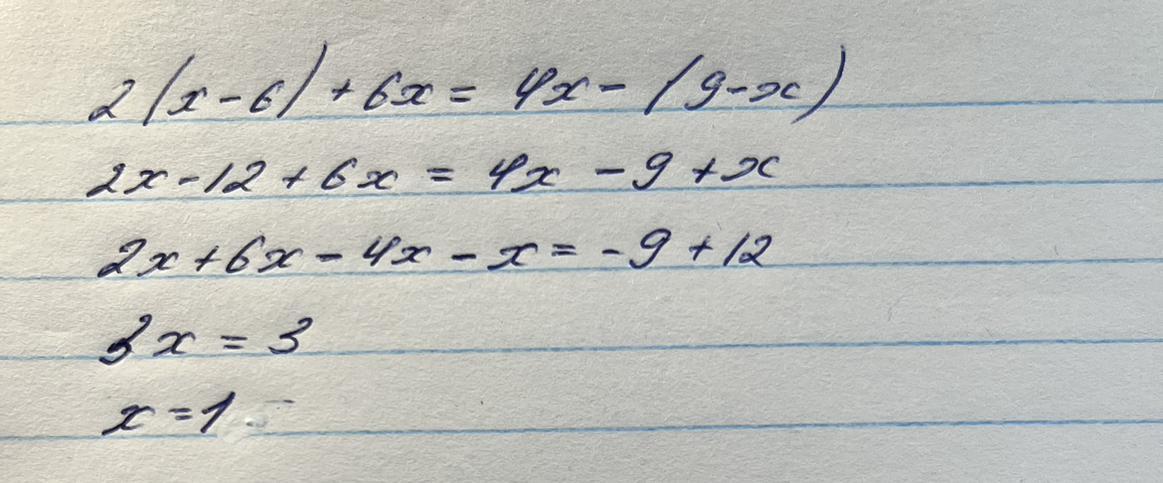 2(x-6)+6x = 4x-(9-x)
2x-12+6x = 4x-9+x
2x+6x-4x-x = -9+12
3x = 3
x = 1